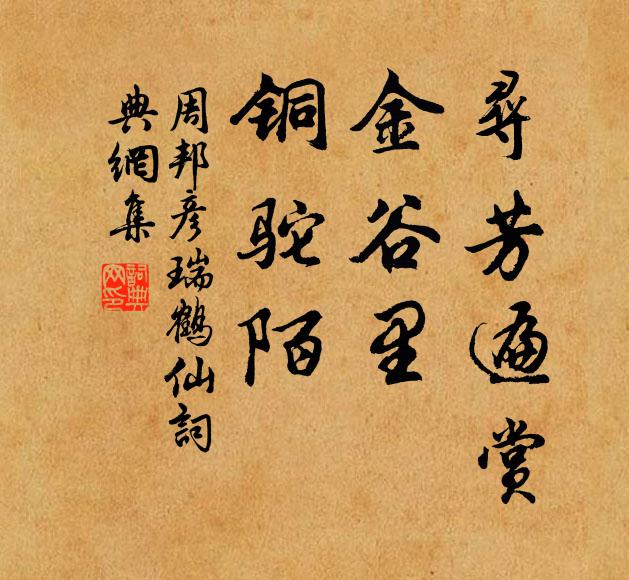 尋芳遍赏
金谷里
铜驼陌
周邦彦瑞鶴仙詞
典網集
詞典网印